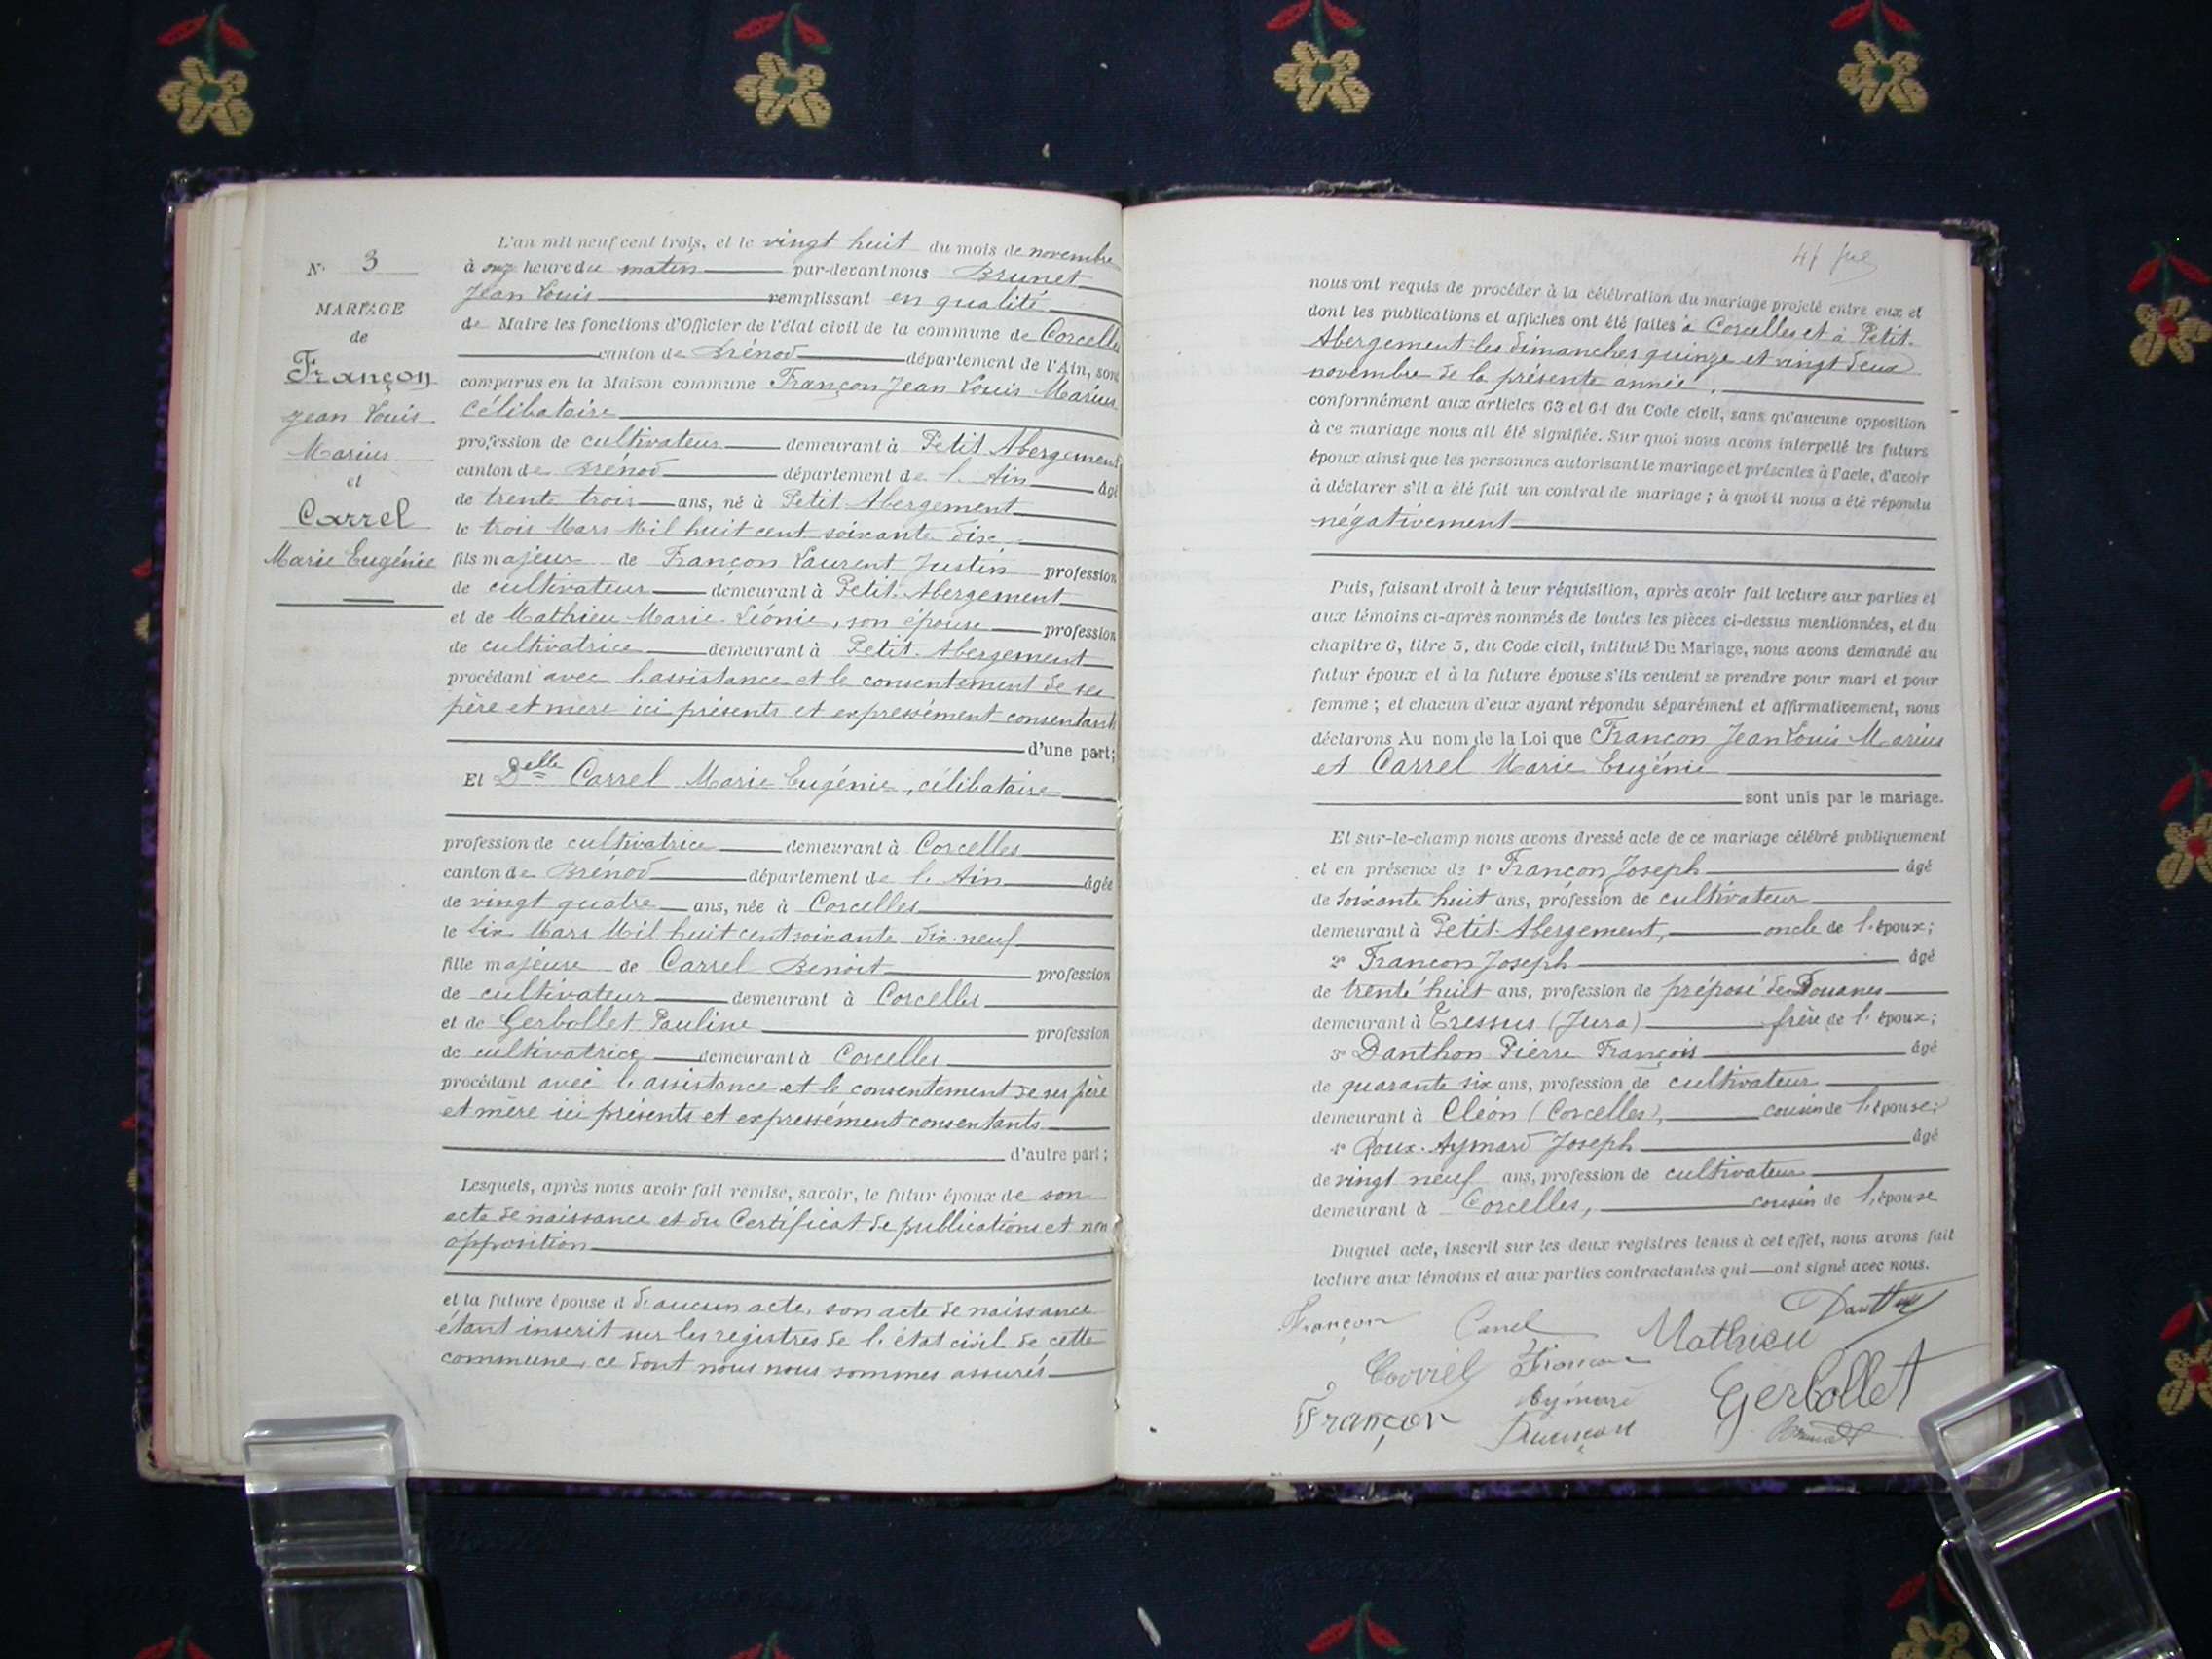 N° 3
MARIAGE
de
Françon
Jean Louis
Marius
et
Carrel
Marie Eugénie
L'an mil neuf cent trois, et le vingt huit du mois de novembre
à onze heure du matin par-devant nous Brunet
Jean Louis remplissant en qualité
de Maire les fonctions d'Officier de l'état civil de la commune de Corcelles
canton de Brénod département de l'Ain, sont
comparus en la Maison commune Françon Jean Louis Marius
célibataire
profession de cultivateur demeurant à Petit Abergement
canton de Brénod département de l'Ain âgé
de trente trois ans, né à Petit Abergement
le trois Mars Mil huit cent soixante dix
fils majeur de Françon Laurent Justin profession
de cultivateur demeurant à Petit-Abergement
et de Mathieu Marie-Léonie, son épouse profession
de cultivatrice demeurant à Petit-Abergement
procédant avec l'assistance et le consentement de ses
père et mère ici présents et expressément consentants
d'une part;
Et Delle Carrel Marie Eugénie, célibataire
profession de cultivatrice demeurant à Corcelles
canton de Brénod département de l'Ain âgée
de vingt quatre ans, née à Corcelles
le six Mars Mil huit cent soixante dix-neuf
fille majeure de Carrel Benoit profession
de cultivateur demeurant à Corcelles
et de Gerbollet Pauline profession
de cultivatrice demeurant à Corcelles
procédant avec l'assistance et le consentement de ses père
et mère ici présents et expressément consentants
d'autre part;
Lesquels, après nous avoir fait remise, savoir, le futur époux de son
acte de naissance et du Certificat de publications et non
opposition
et la future épouse d'aucun acte, son acte de naissance
étant inscrit sur les registres de l'état civil de cette
commune, ce dont nous nous sommes assurés
nous ont requis de procéder à la célébration du mariage projeté entre eux et
dont les publications et affiches ont été faites à Corcelles et à Petit-
Abergement les dimanches quinze et vingt deux
novembre de la présente année,
conformément aux articles 63 et 64 du Code civil, sans qu'aucune opposition
à ce mariage nous ait été signifiée. Sur quoi nous avons interpellé les futurs
époux ainsi que les personnes autorisant le mariage et présentes à l'acte, d'avoir
à déclarer s'il a été fait un contrat de mariage; à quoi il nous a été répondu
négativement
Puis, faisant droit à leur réquisition, après avoir fait lecture aux parties et
aux témoins ci-après nommés de toutes les pièces ci-dessus mentionnées, et du
chapitre 6, titre 5, du Code civil, intitulé Du Mariage, nous avons demandé au
futur époux et à la future épouse s'ils veulent se prendre pour mari et pour
femme; et chacun d'eux ayant répondu séparément et affirmativement, nous
déclarons Au nom de la Loi que Françon Jean Louis Marius
et Carrel Marie Eugénie
sont unis par le mariage.
Et sur-le-champ nous avons dressé acte de ce mariage célébré publiquement
et en présence de 1° Françon Joseph âgé
de soixante huit ans, profession de cultivateur
demeurant à Petit-Abergement, oncle de l'époux;
2° Françon Joseph âgé
de trente huit ans, profession de préposé des Douanes
demeurant à Tressus (Jura) frère de l'époux;
3° Danthon Pierre François âgé
de quarante six ans, profession de cultivateur
demeurant à Cléon (Corcelles), cousin de l'épouse;
4° Roux-Aymard Joseph âgé
de vingt neuf ans, profession de cultivateur
demeurant à Corcelles, cousin de l'épouse
Duquel acte, inscrit sur les deux registres tenus à cet effet, nous avons fait
lecture aux témoins et aux parties contractantes qui ont signé avec nous.
Françon Carrel Mathieu Danthon
Carrel Françon
Françon Aymard Gerbollet
Françon Brunet